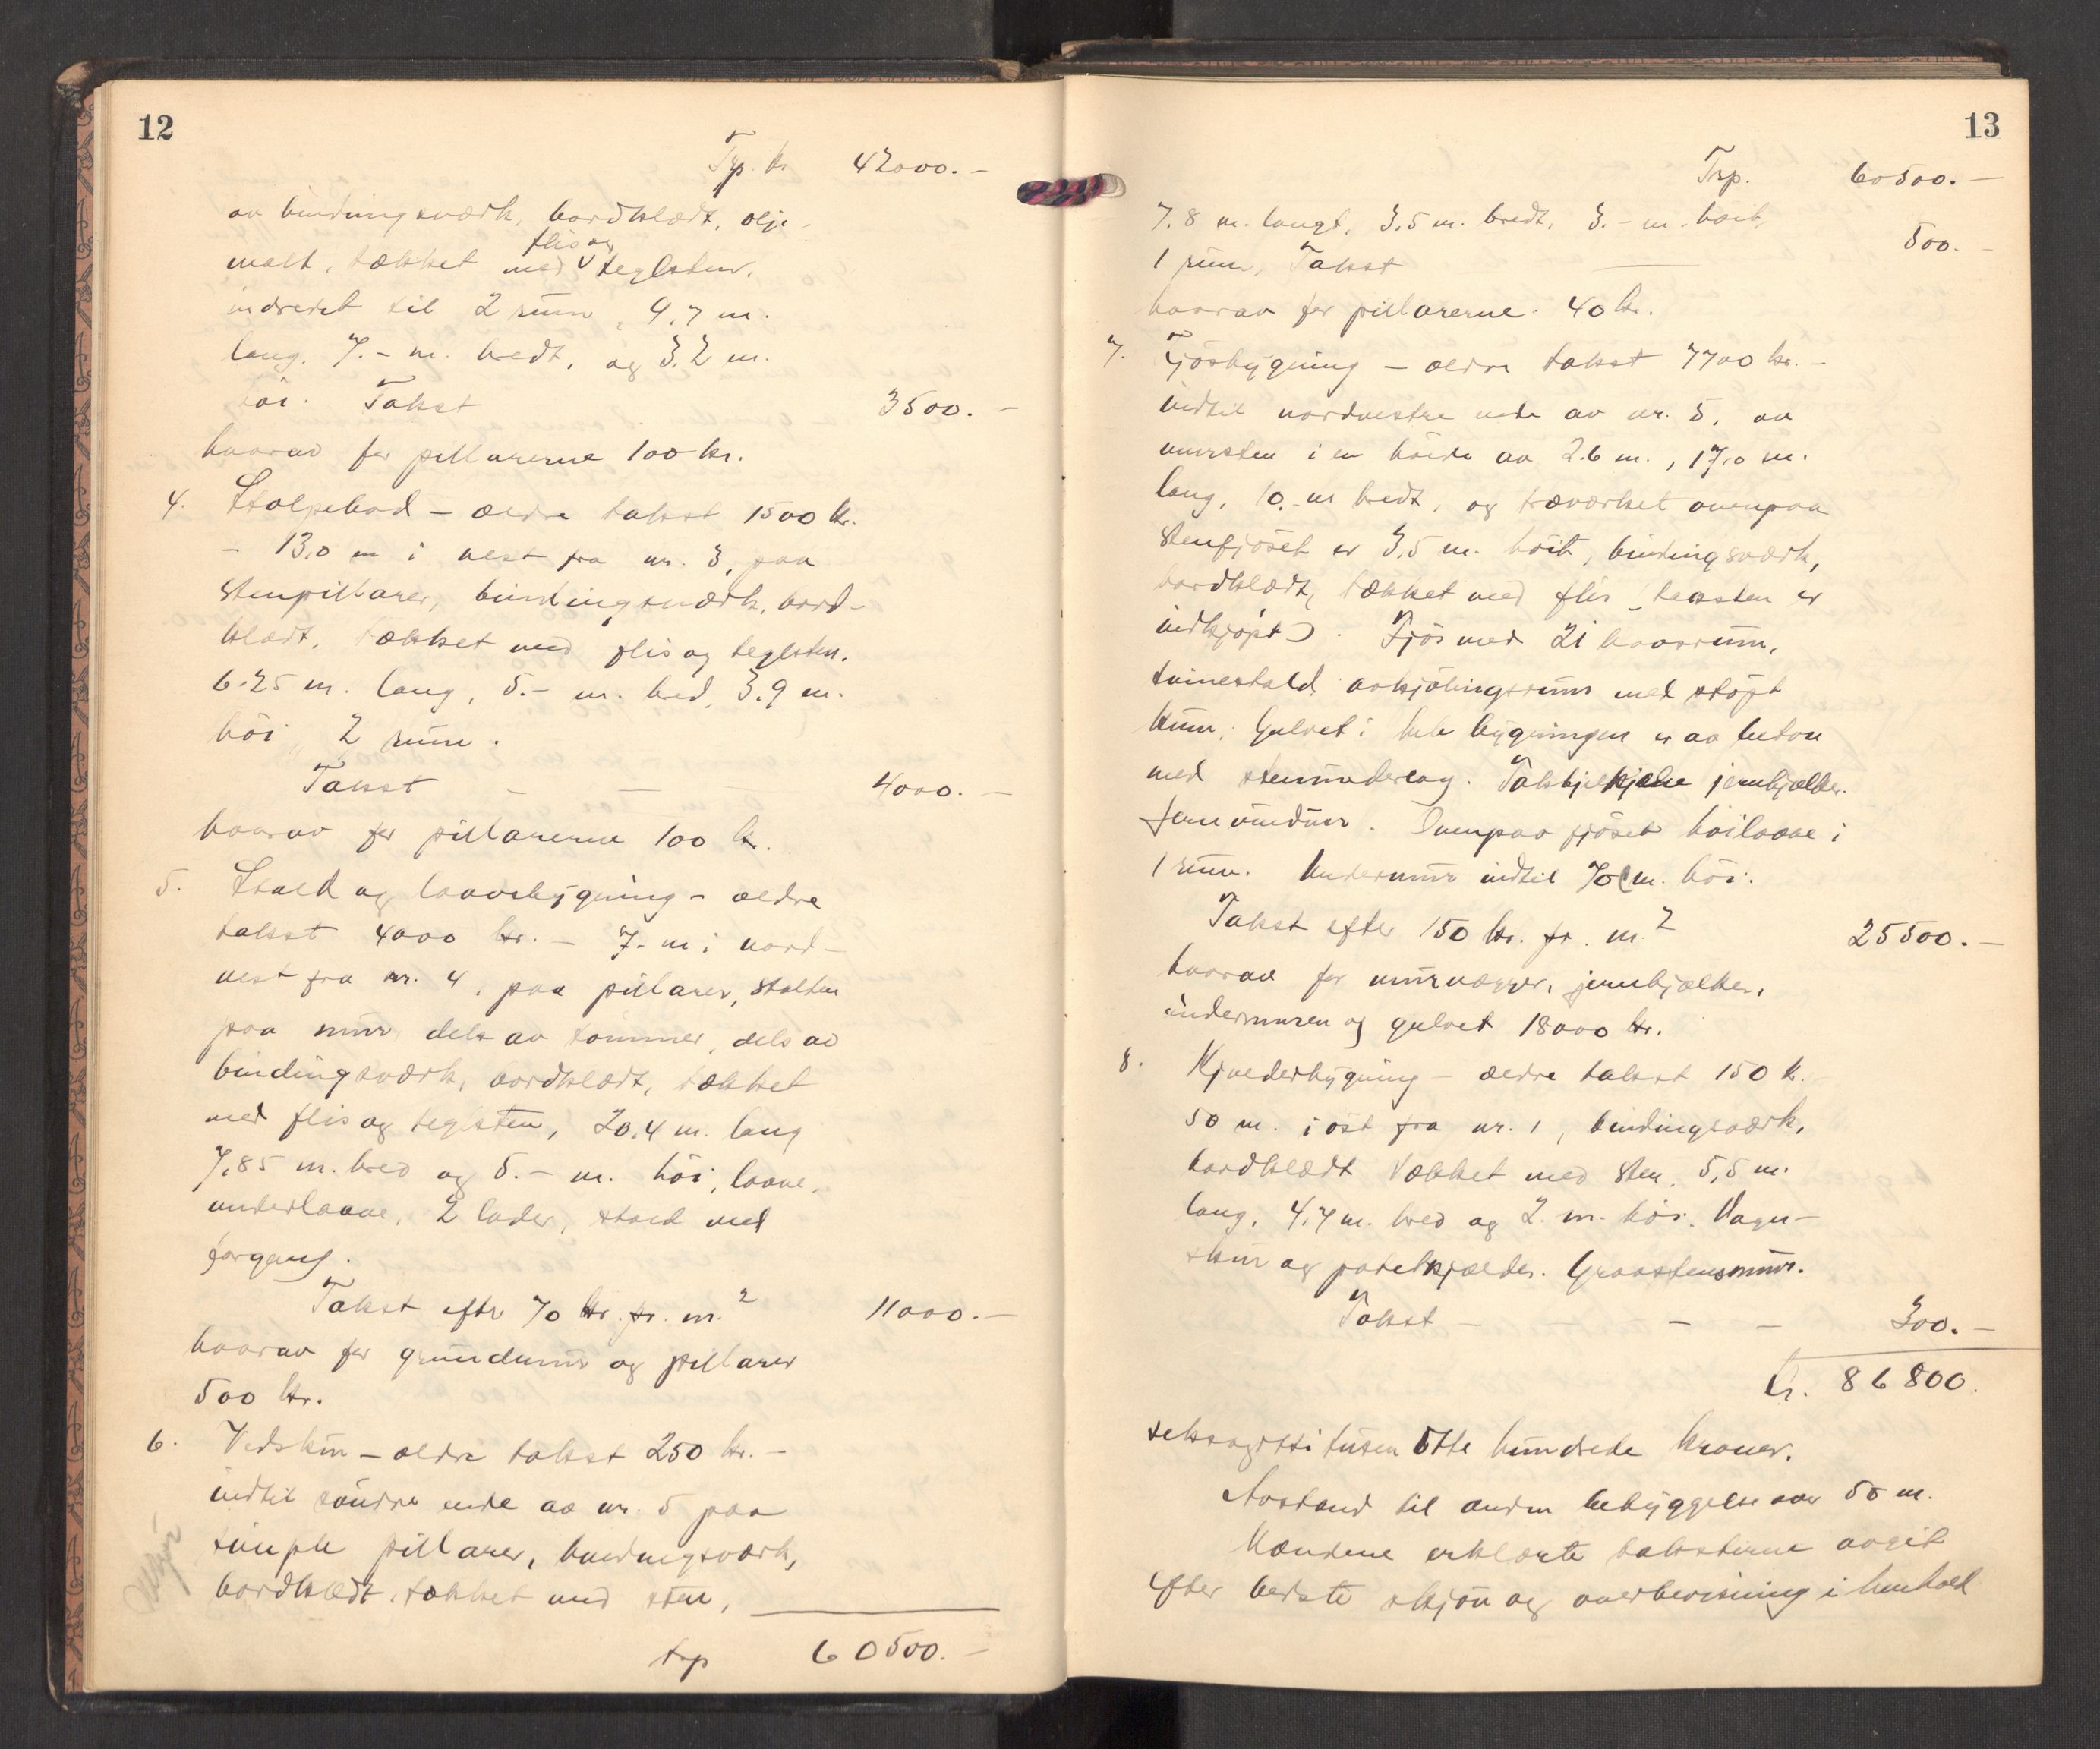 12
Trp. kr. 42000.-
av bindingsværk, bordklædt, olje-
malt, tækket med flis og teglsten,
indredet til 2 rum, 9,7 m.
lang, 7.- m. bredt, og 3.2 m.
høi. Takst 3500.-
hvorav for pillarerne 100 kr.
4. Stolpebod - ældre takst 1500 kr.
- 13,0 m i vest fra nr. 3, paa
stenpillarer, bindingsværk, bord-
klædt, tækket med flis og teglsten.
6.25 m. lang, 5.- m. bred, 3.9 m.
høi, 2 rum.
Takst - - 4000.-
hvorav for pillarerne 100 kr.
5. Stald og laavebygning - ældre
takst 4000 kr. - 7.- m i nord-
vest fra nr. 4, paa pillarer, stalden
paa mur, dels av tømmer, dels av
bindingsværk, bordklædt, tækket
med flis og teglsten, 20,4 m. lang
7,85 m. bred og 5.- m. høi, laave,
underlaave, 2 lader, stald med
forgang.
Takst efter 70 kr. pr. m.² 11000.-
hvorav for grundmur og pillarer
500 kr.
6. Vedskur - ældre takst 250 kr. -
indtil søndre ende av nr. 5 paa
simple pillarer, bindingsværk,
bordklædt, tækket med sten,
trp 60500.-
13
Trp. 60500.-
7,8 m. langt, 3,5 m. bredt, 3.- m. høit,
1 rum, Takst 500.-
hvorav for pillarerne 40 kr.
7. Fjøsbygning - ældre takst 7700 kr. -
indtil nordvestre ende av nr. 5, av
mursten i en høide av 2.6 m., 17,0 m.
lang, 10.- m bredt, og træverket ovenpaa
stenfjøset er 3,5 m. høit, bindingsværk,
bordklædt, tækket med flis (taksten er
indkjøpt). Fjøs med 21 baasrum,
svinestald, avkjølingsrum med støpt
kum, Gulvet i hele bygningen er av beton
med stenunderlag. jernbjælker.
Jernvinduer. Ovenpaa fjøset høilaave i
1 rum. Undermur indtil 70 cm. høi.
Takst efter 150 kr. pr. m.² 25500.-
hvorav for murvægger, jernbjælker,
undermuren og gulvet 18000 kr.
8. Kjælderbygning - ældre takst 150 kr.
50 m. i øst fra nr. 1, bindingsværk,
bordklædt tækket med sten, 5,5 m.
lang, 4,4 m. bred og 2.- m. høi. Vogn-
skur og potetkjælder. Graastensmur.
Takst - - - 300.-
Kr. 86800.
seksogotti tusen otte hundrede kroner.
Avstand til anden bebyggelse over 50 m.
Mændene erklærte taksterne avgit
efter bedste skjøn og overbevisning i henhold